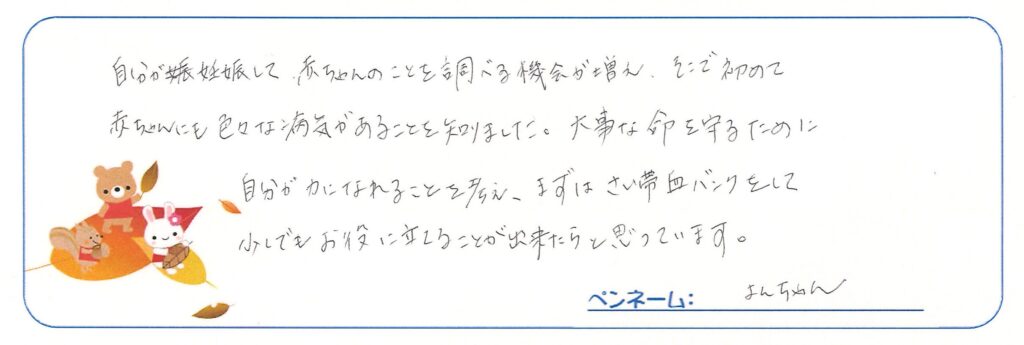 自分が妊娠して、赤ちゃんのことを調べる機会が増え、そこで初めて
赤ちゃんにも色々な病気があることを知りました。大事な命を守るために
自分が力になれることを考え、まずはさい帯血バンクをして
少しでもお役に立てることが出来たらと思っています。
ペンネーム: よんちゃん